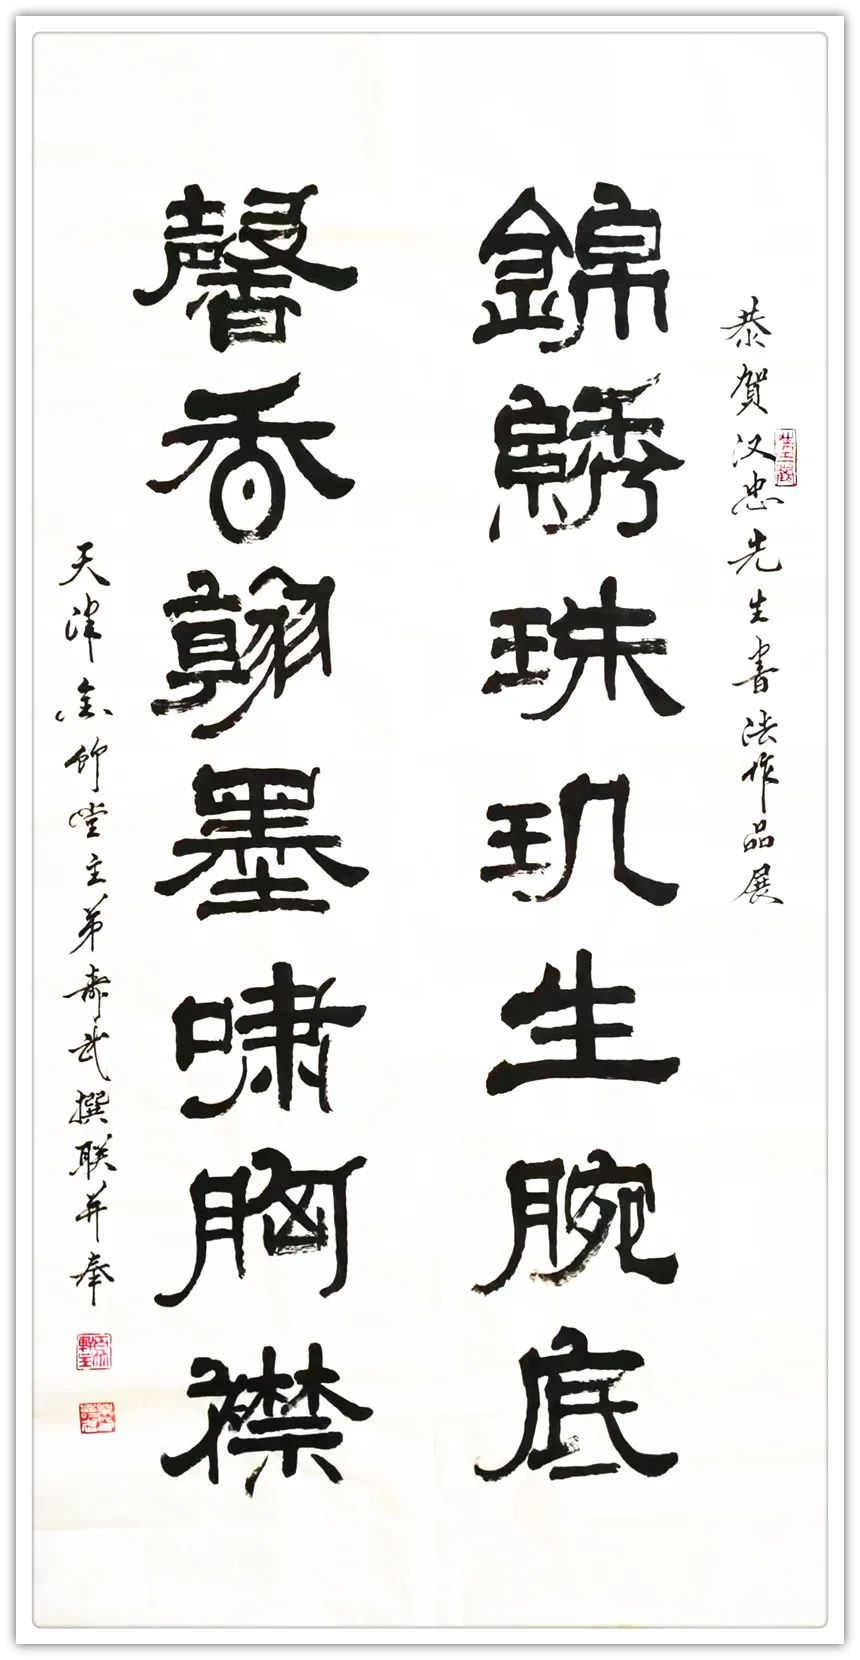 恭賀汉忠先生書法作品展
錦綉珠玑生腕底
馨香翰墨啸胸襟
天津 堂主弟寿武撰联并奉